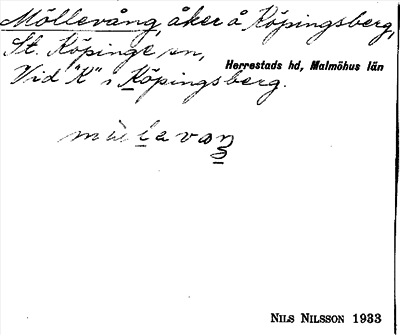 Möllevång, åker å Köpingsberg,
St. Köpinge sn,
Herrestads hd, Malmöhus län
Vid "K" i Köpingsberg.
NILS NILSSON 1933